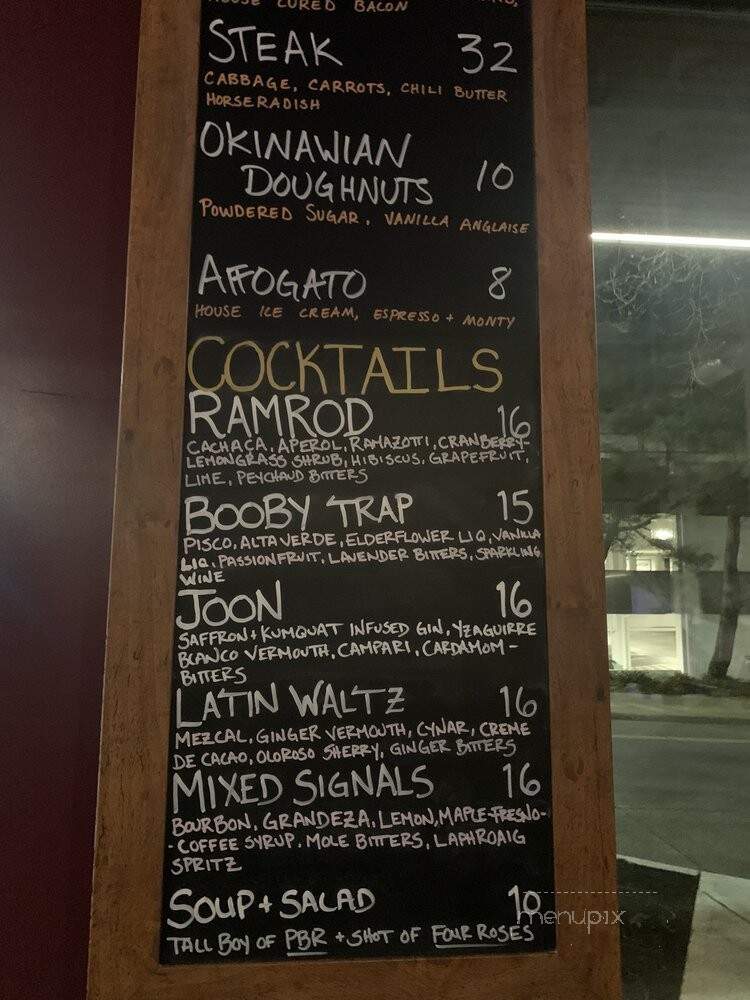 HOUSE CURED BACON
STEAK 32
CABBAGE, CARROTS, CHILI BUTTER
HORSERADISH
OKINAWIAN
DOUGHNUTS 10
POWDERED SUGAR, VANILLA ANGLAISE
AFFOGATO 8
HOUSE ICE CREAM, ESPRESSO + MONTY
COCKTAILS
RAMROD 16
CACHACA, APEROL, RAMAZOTTI, CRANBERRY-
LEMONGRASS SHRUB, HIBISCUS, GRAPEFRUIT,
LIME, PEYCHAUD BITTERS
BOOBY TRAP 15
PISCO, ALTA VERDE, ELDERFLOWER LIQ, VANILLA
LIQ, PASSIONFRUIT, LAVENDER BITTERS, SPARKLING
WINE
JOON 16
SAFFRON + KUMQUAT INFUSED GIN, YZAGUIRRE
BLANCO VERMOUTH, CAMPARI, CARDAMOM-
BITTERS
LATIN WALTZ 16
MEZCAL, GINGER VERMOUTH, CYNAR, CREME
DE CACAO, OLOROSO SHERRY, GINGER BITTERS
MIXED SIGNALS 16
BOURBON, GRANDEZA, LEMON, MAPLE-FRESNO-
-COFFEE SYRUP, MOLE BITTERS, LAPHROAIG
SPRITZ
SOUP + SALAD 10
TALL BOY OF PBR + SHOT OF FOUR ROSES
menupix